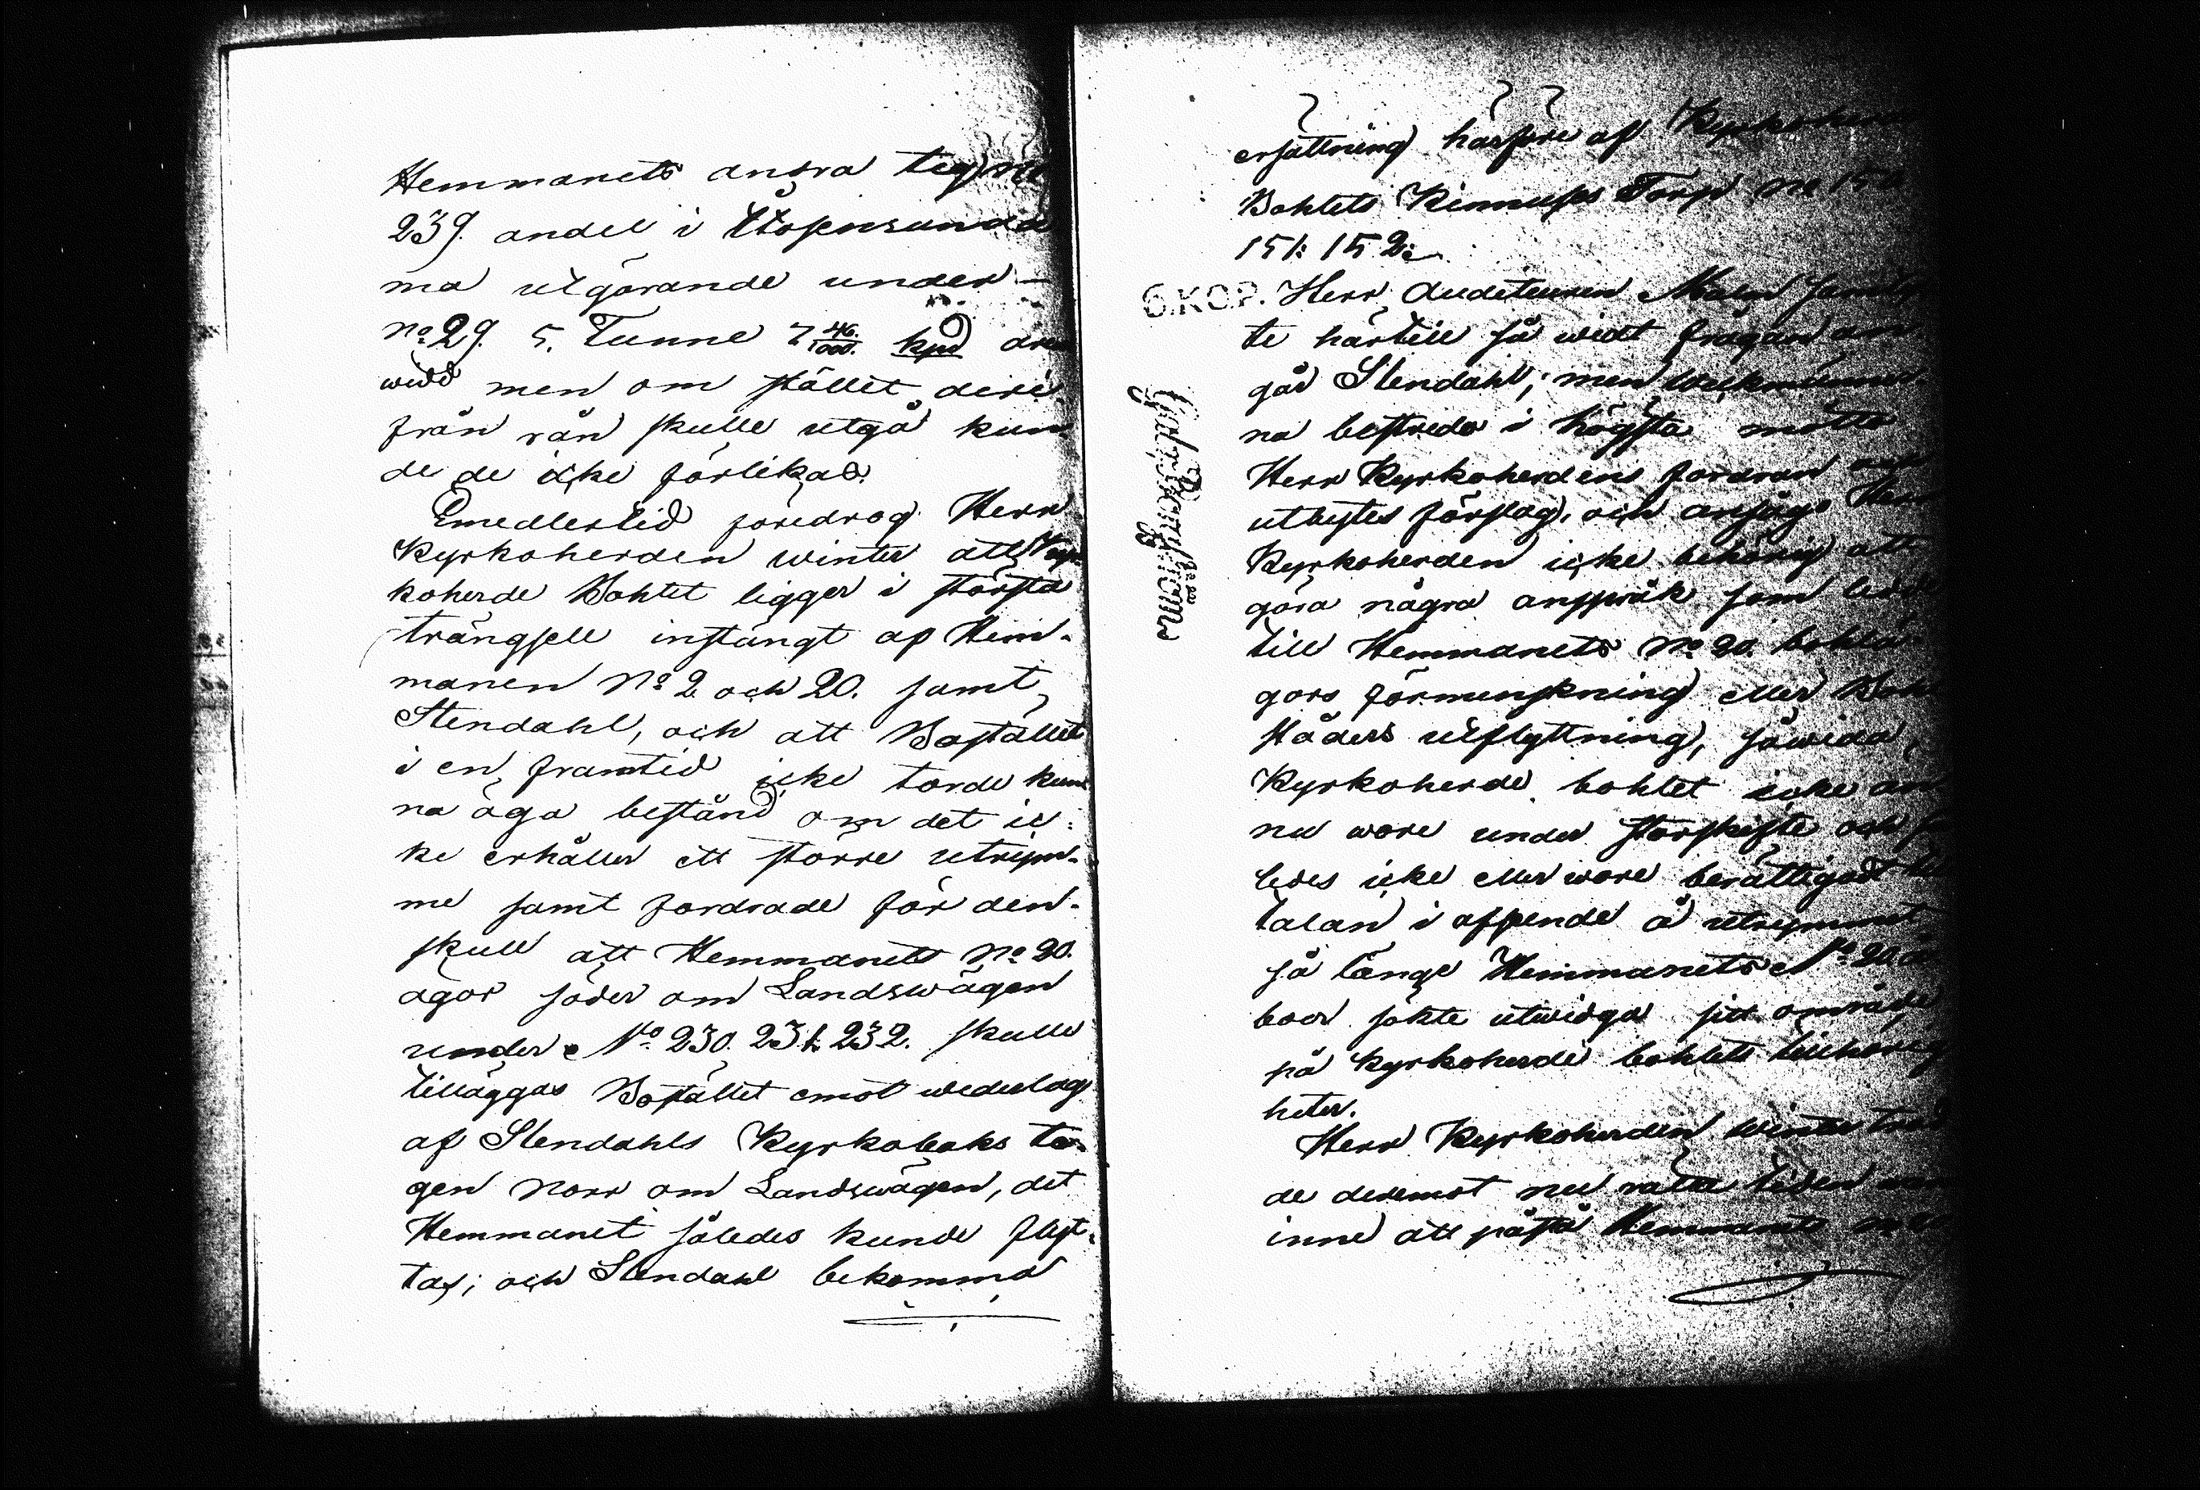 Hemmanets andra teg N:o
239. andel i
ma utgörande under
N:o 29. 5. Tunne 7 46/1000. kpd
widd men om stället deri
från rån skulle utgå kun
de de icke förlikas.
Emedlertid föredrog Herr
Kyrkoherden Winter att Kyr
koherde Bohlet ligger i största
trängsell instängt af Hem-
manen N:o 2 och 20. samt
Stendahl, och att Bostället
i en framtid icke torde kun
na äga bestånd om det ic-
ke erhåller ett större utrym-
me samt fordrade för den-
skull att Hemmanets N:o 20.
ägor söder om Landswägen
under N:o 230. 231. 232. skulle
tilläggas Bostället emot wederlag
af Stendahls Kyrkobohs te-
gen norr om Landswägen, det
Hemmanet således kunde flyt-
tas; och Stendahl bekomma
ersättning härföre af Kyrkoherde
Bohlets Torp N:o
151: 152:
6.KOP. Herr Auditeuren Malm
te härtill så widt frågan an
går Stendahl; men
na bestredo i högsta måtto
Herr Kyrkoherdens fordran och
utbytes förslag, och ansågo Herr
Kyrkoherden icke behörig att
göra några anspråk som ledde
till Hemmanets N:o 20.
gors förminskning eller Boh
städers utflyttning, såwida
Kyrkoherde bohlet icke än
nu wore under storskifte och så
ledes icke eller wore berättigat till
talan i afseende å utrymmet
så länge Hemmanets N:o 20 å
boer sökte utwidga sitt område
på Kyrkoherde bohlets tillhörig
heter.
Herr Kyrkoherden Winter trod
de deremot nu rätta tiden wara
inne att påstå Hemmanets